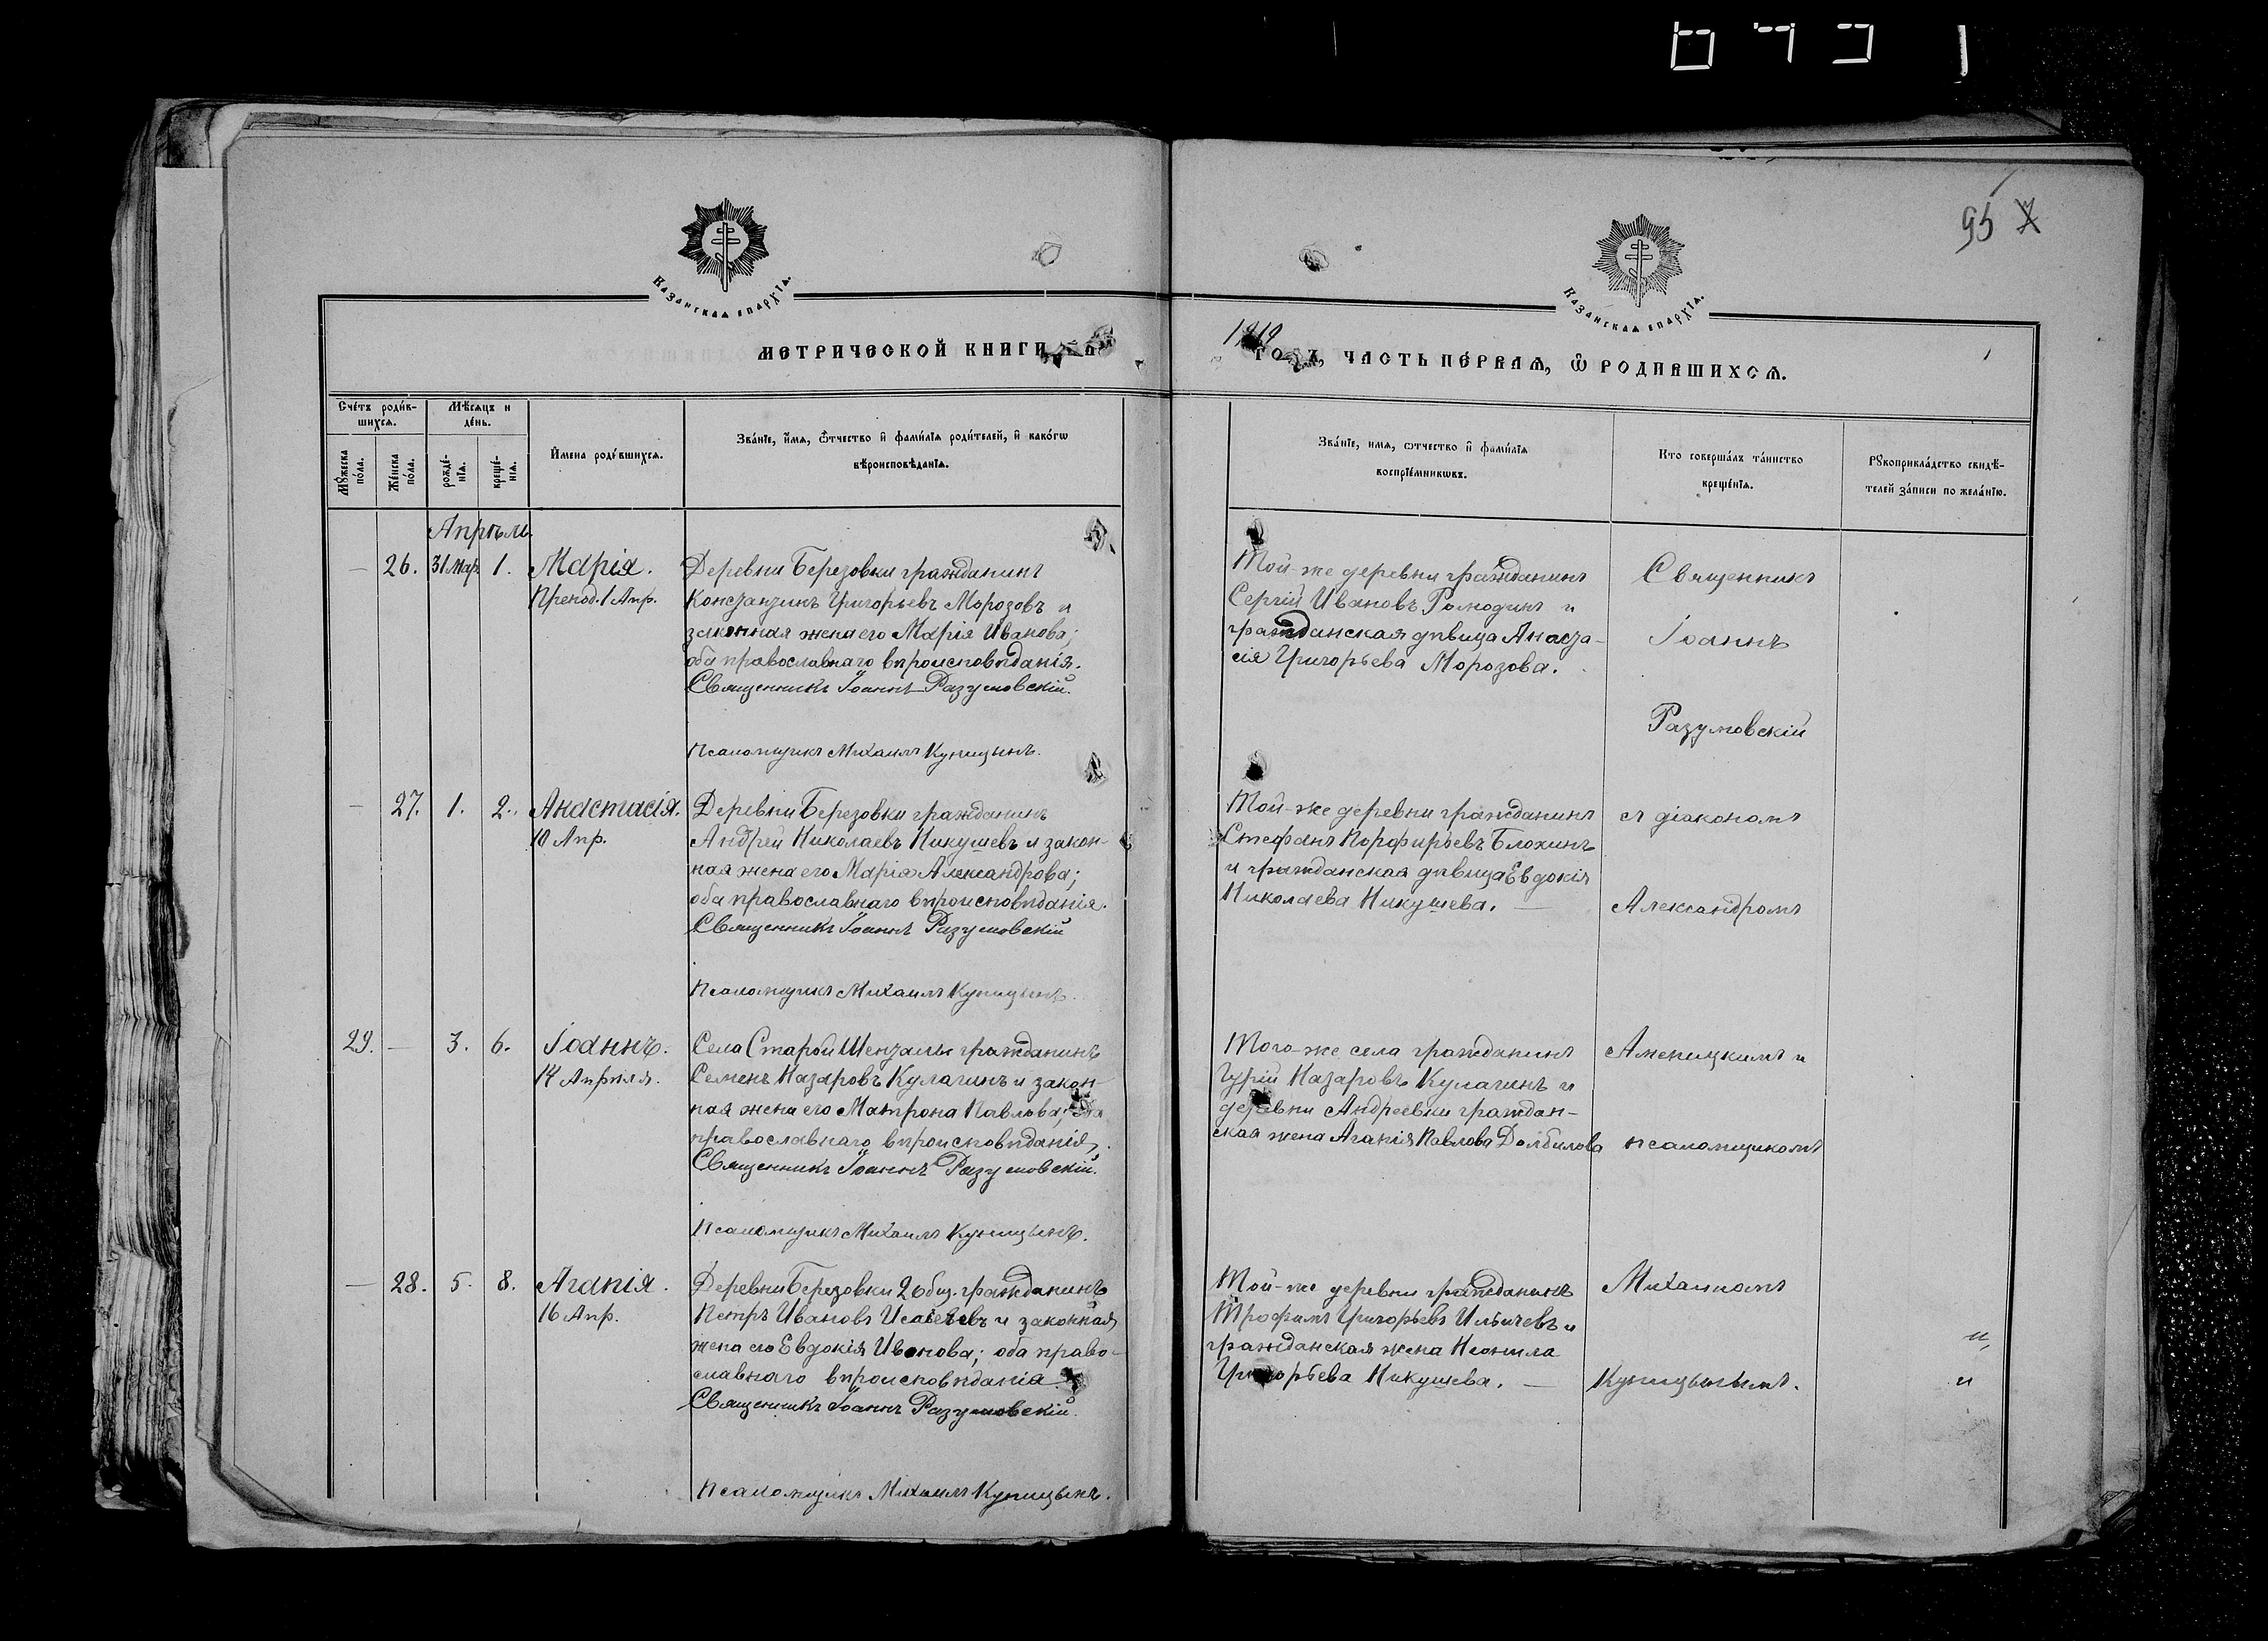 95
Казанская епархїя.
Казанская епархїя.
МЕТРИЧЕСКОЙ КНИГИ
1919
ГОДЪ, ЧАСТЬ ПЕ́РВАЯ, Ѽ РОДИВШИХСЯ.
Сче́тъ роди́в-
шихся.
Мѣсяцъ и
де́нь.
Мꙋ́жеска
по́ла.
Же́нска
по́ла.
рожде́-
нїя.
креще́-
нїя.
И҆мена роди́вшихся.
Зва́нїе, и҆́мя, ѻ҆́тчество и҆ фами́лїя роди́телей, и҆ како́гѡ
вѣроисповѣданїя.
Зва́нїе, имя, ѻтчество и҆ фами́лїя
воспрїе́мникѡвъ.
Кто соверша́лъ та́инство
креще́нїя.
Рꙋкоприкла́дство свидѣ́-
телей за́писи по жела́нїю.
Апрѣль.
26. 31 Мар. 1. Марія.
Препод. 1 Апр.
Деревни Березовки гражданинъ
Константинъ Григорьевъ Морозовъ и
законная жена его Марія Иванова;
оба православнаго вѣроисповѣданія.
Священникъ Іоаннъ Разумовскій.
Псаломщикъ Михаилъ Куницынъ.
Той-же деревни гражданинъ
Сергій Ивановъ Ромодинъ и
гражданская дѣвица Анаста-
сія Григорьева Морозова.
Священникъ
Іоаннъ
Разумовскій
27. 1. 2. Анастасія.
10 Апр.
Деревни Березовки гражданинъ
Андрей Николаевъ Никушевъ и закон-
ная жена его Марія Александрова;
оба православнаго вѣроисповѣданія.
Священникъ Іоаннъ Разумовскій
Псаломщикъ Михаилъ Куницынъ.
Той-же деревни гражданинъ
Стефанъ Порфирьевъ Блохинъ
и гражданская дѣвица Евдокія
Николаева Никушева.
съ діакономъ
Александромъ
29. — 3. 6. Іоаннъ.
14 Апрѣля.
Села Старой Шенталы гражданинъ
Семенъ Назаровъ Кулагинъ и закон-
ная жена его Матрона Павлова;
православнаго вѣроисповѣданія.
Священникъ Іоаннъ Разумовскій.
Псаломщикъ Михаилъ Куницынъ.
Того-же села гражданинъ
Гурій Назаровъ Кулагинъ и
деревни Андреевки граждан-
ская жена Агапія Павлова Долбилова
Аменицкимъ и
псаломщикомъ
— 28. 5. 8. Агапія.
16 Апр.
Деревни Березовки 2 общ. гражданинъ
Петръ Ивановъ и законная
жена его Евдокія Иванова; оба право-
славнаго вѣроисповѣданія.
Священникъ Іоаннъ Разумовскій.
Псаломщикъ Михаилъ Куницынъ.
Той-же деревни гражданинъ
Трофимъ Григорьевъ Ильичевъ и
гражданская жена Неонила
Григорьева Никушева. —
Михаиломъ
Куницынымъ.